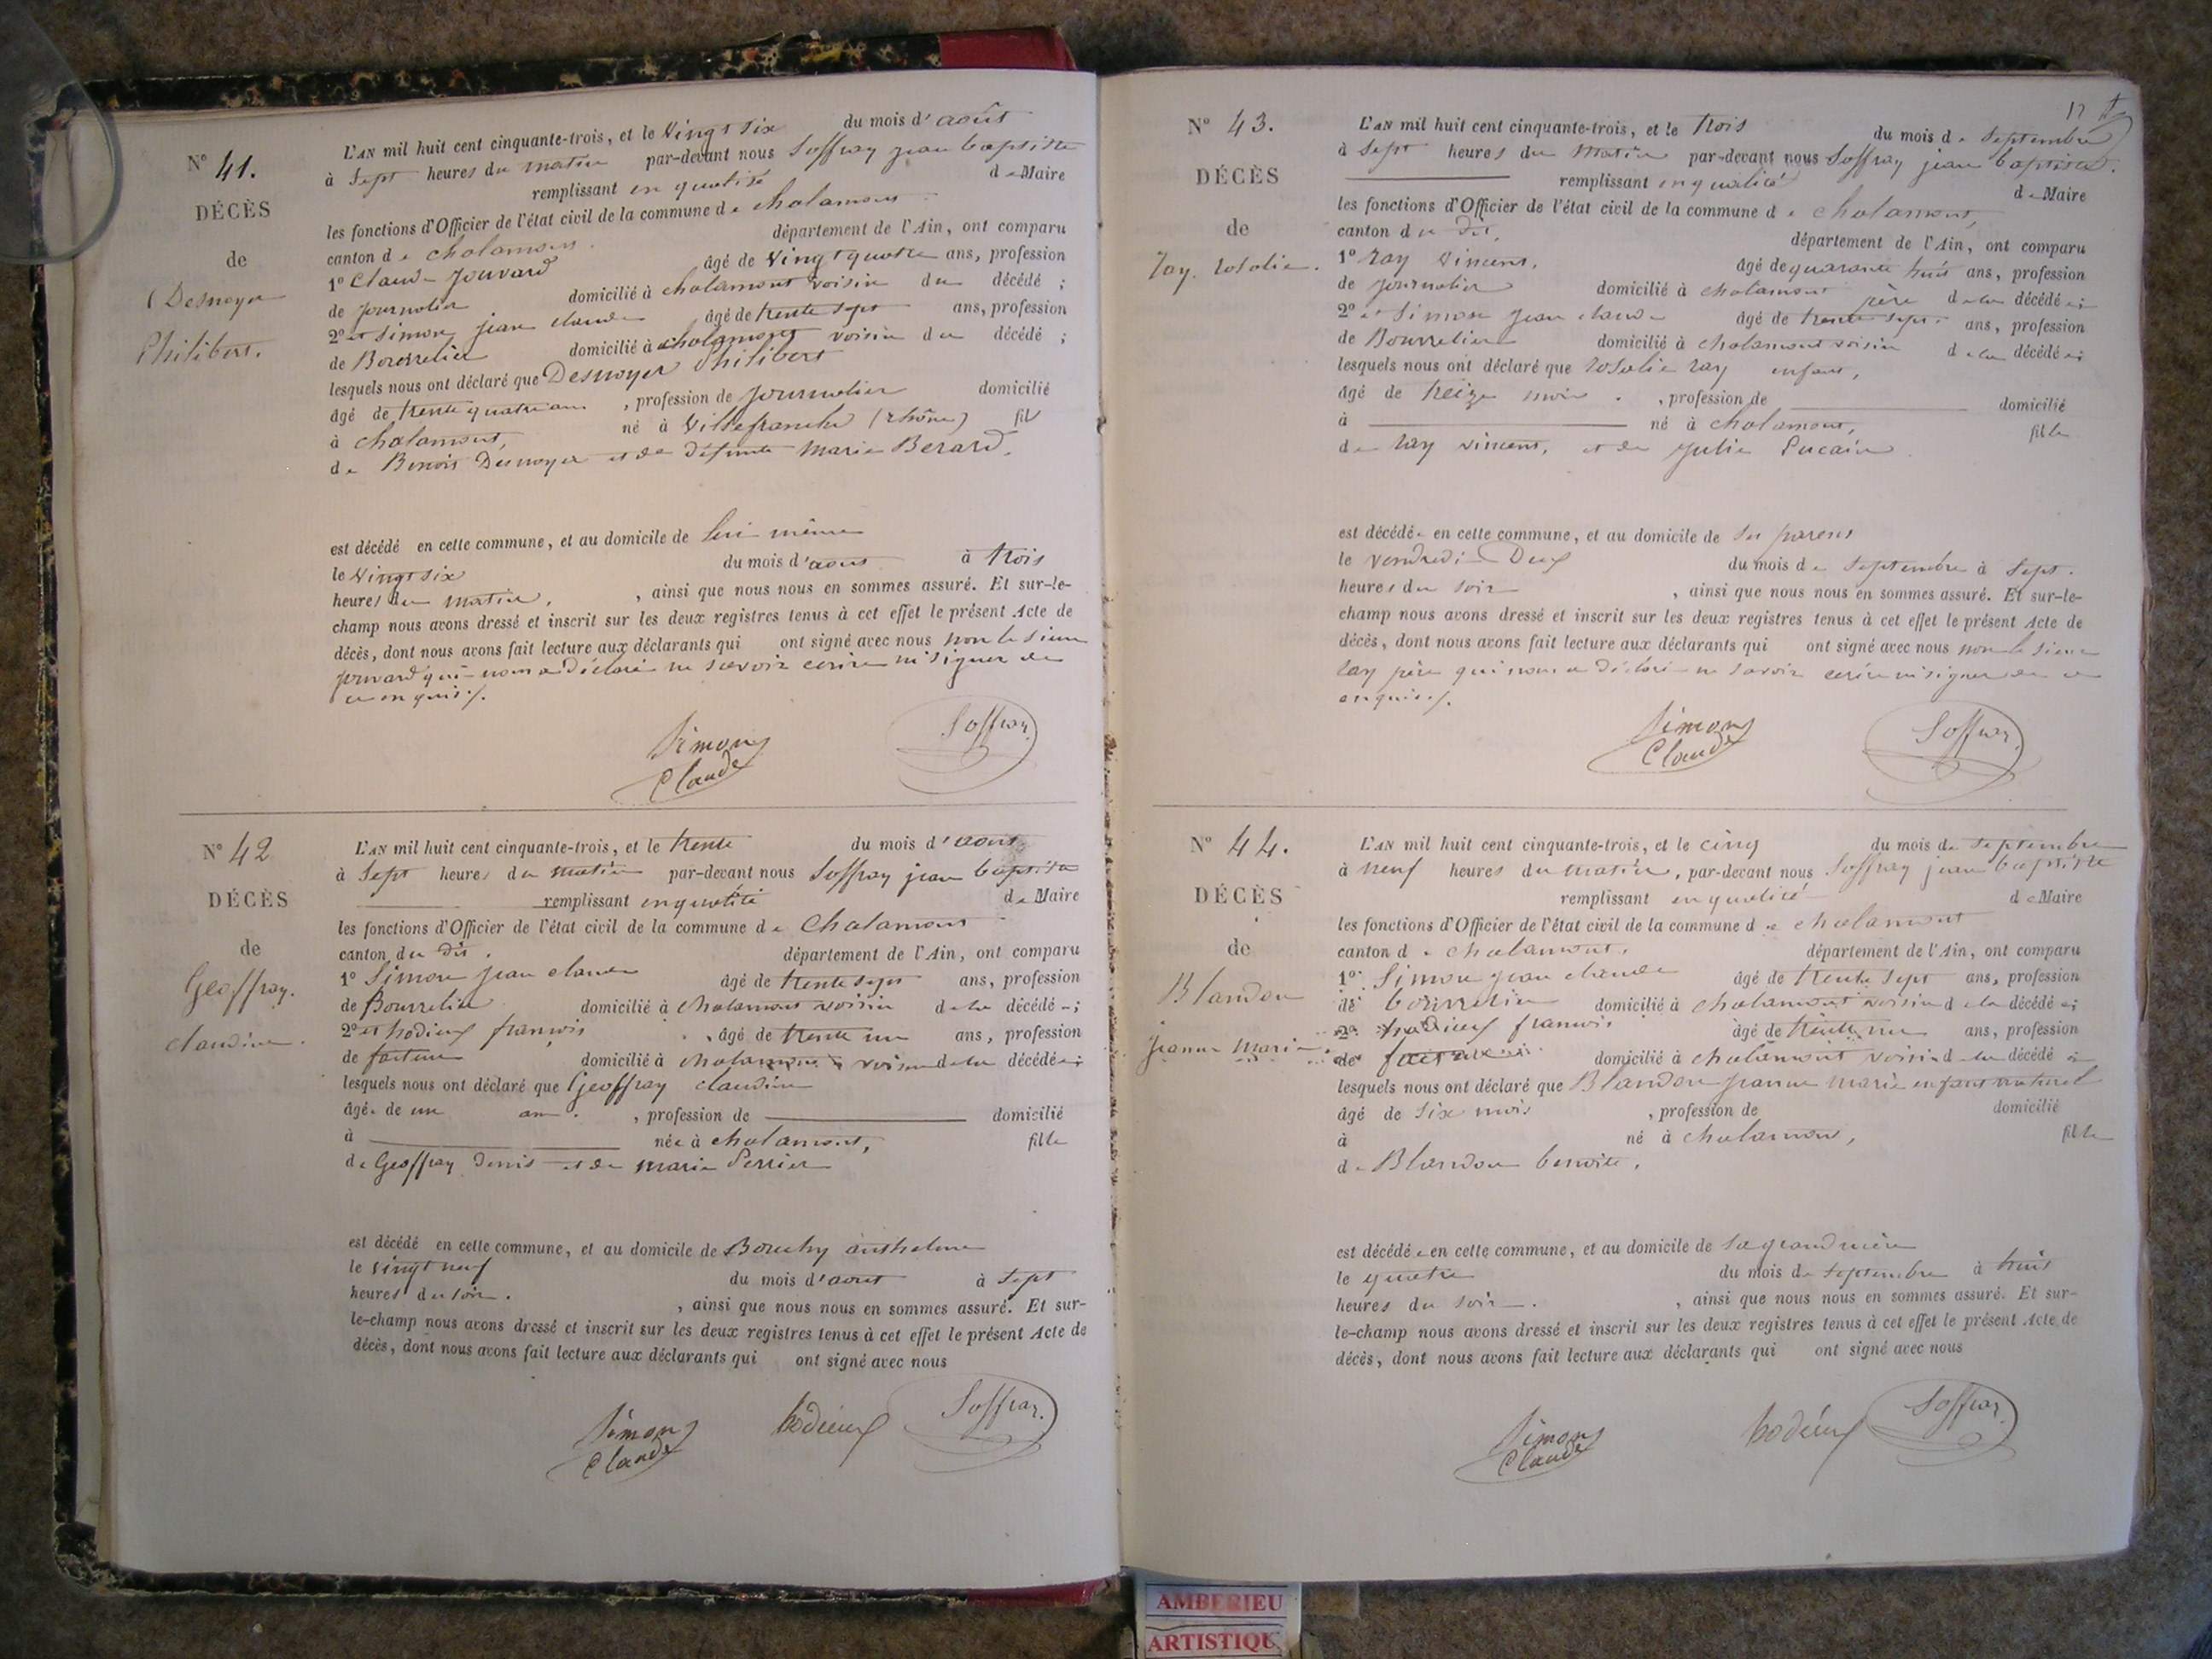 N° 41.
DÉCÈS
de
Desnoyer
Philibert.
L'AN mil huit cent cinquante-trois, et le vingt six du mois d'août
à sept heures du matin par-devant nous Soffray jean baptiste
remplissant en qualité de Maire
les fonctions d'Officier de l'état civil de la commune de chalamont
canton de chalamont. département de l'Ain, ont comparu
1° Claude Jouvard âgé de vingt quatre ans, profession
de journalier domicilié à chalamont voisin du décédé ;
2° et Simon jean claude âgé de trente sept ans, profession
de Bourrelier domicilié à chalamont voisin du décédé ;
lesquels nous ont déclaré que Desnoyer Philibert
âgé de trente quatre ans , profession de journalier domicilié
à chalamont, né à Villefranche (rhône) fils
de Benoit Desnoyer et de défunte Marie Berard.
est décédé en cette commune, et au domicile de lui même
le vingt six du mois d'aout à trois
heures du matin. , ainsi que nous nous en sommes assuré. Et sur-le-
champ nous avons dressé et inscrit sur les deux registres tenus à cet effet le présent Acte de
décès, dont nous avons fait lecture aux déclarants qui ont signé avec nous non le sieur
jouvard qui nous a déclaré ne savoir ecrire ni signer de
ce enquis /.
Simon
Claude
Soffray
N° 42
DÉCÈS
de
Geoffray.
claudine.
L'AN mil huit cent cinquante-trois, et le trente du mois d'aout
à sept heures du matin par-devant nous Soffray jean baptiste
remplissant en qualité de Maire
les fonctions d'Officier de l'état civil de la commune de Chalamont
canton du dit. département de l'Ain, ont comparu
1° Simon jean claude âgé de trente sept ans, profession
de Bourrelier domicilié à chalamont voisin de la décédée ;
2° et hodieux francois âgé de trente un ans, profession
de facteur domicilié à chalamont voisin de la décédée ;
lesquels nous ont déclaré que Geoffray claudine
âgée de un an. , profession de domicilié
à née à chalamont, fille
de Geoffray Denis et de marie Perrier
est décédé en cette commune, et au domicile de Bouchy anthelme
le vingt neuf du mois d'aout à sept
heures du soir. , ainsi que nous nous en sommes assuré. Et sur-
le-champ nous avons dressé et inscrit sur les deux registres tenus à cet effet le présent Acte de
décès, dont nous avons fait lecture aux déclarants qui ont signé avec nous
Simon
Claude
hodieux
Soffray
12
N° 43.
DÉCÈS
de
Ray. rosalie.
L'AN mil huit cent cinquante-trois, et le trois du mois de septembre
à sept heures du matin par-devant nous Soffray jean baptiste.
remplissant en qualité de Maire
les fonctions d'Officier de l'état civil de la commune de chalamont,
canton du dit, département de l'Ain, ont comparu
1° ray vincent, âgé de quarante huit ans, profession
de journalier domicilié à chalamont père de la décédée ;
2° et Simon jean claude âgé de trente sept ans, profession
de Bourrelier domicilié à chalamont voisin de la décédée ;
lesquels nous ont déclaré que rosalie ray enfant,
âgé de treize mois. , profession de domicilié
à né à chalamont, fille
de ray vincent, et de julie Pucain
est décédée en cette commune, et au domicile de ses parens
le vendredi Deux du mois de septembre à sept.
heures du soir , ainsi que nous nous en sommes assuré. Et sur-le-
champ nous avons dressé et inscrit sur les deux registres tenus à cet effet le présent Acte de
décès, dont nous avons fait lecture aux déclarants qui ont signé avec nous non le sieur
ray père qui nous a déclaré ne savoir ecrire ni signer de ce
enquis /.
Simon
Claude
Soffray
N° 44.
DÉCÈS
de
Blandon
jeanne marie
L'AN mil huit cent cinquante-trois, et le cinq du mois de septembre
à neuf heures du matin, par-devant nous Soffray jean baptiste
remplissant en qualité de Maire
les fonctions d'Officier de l'état civil de la commune de chalamont
canton de chalamont. département de l'Ain, ont comparu
1° Simon jean claude âgé de trente sept ans, profession
de bourrelier domicilié à chalamont voisin de la décédée ;
2° hodieux francois âgé de trente un ans, profession
de facteur domicilié à chalamont voisin de la décédée
lesquels nous ont déclaré que Blandon jeanne marie enfant naturel
âgé de six mois , profession de domicilié
à né à chalamont, fille
de Blandon benoite.
est décédée en cette commune, et au domicile de sa grand mère
le quatre du mois de septembre à huit
heures du soir. , ainsi que nous nous en sommes assuré. Et sur-
le-champ nous avons dressé et inscrit sur les deux registres tenus à cet effet le présent Acte de
décès, dont nous avons fait lecture aux déclarants qui ont signé avec nous
Simon
Claude
hodieux
Soffray
AMBERIEU
ARTISTIQUE